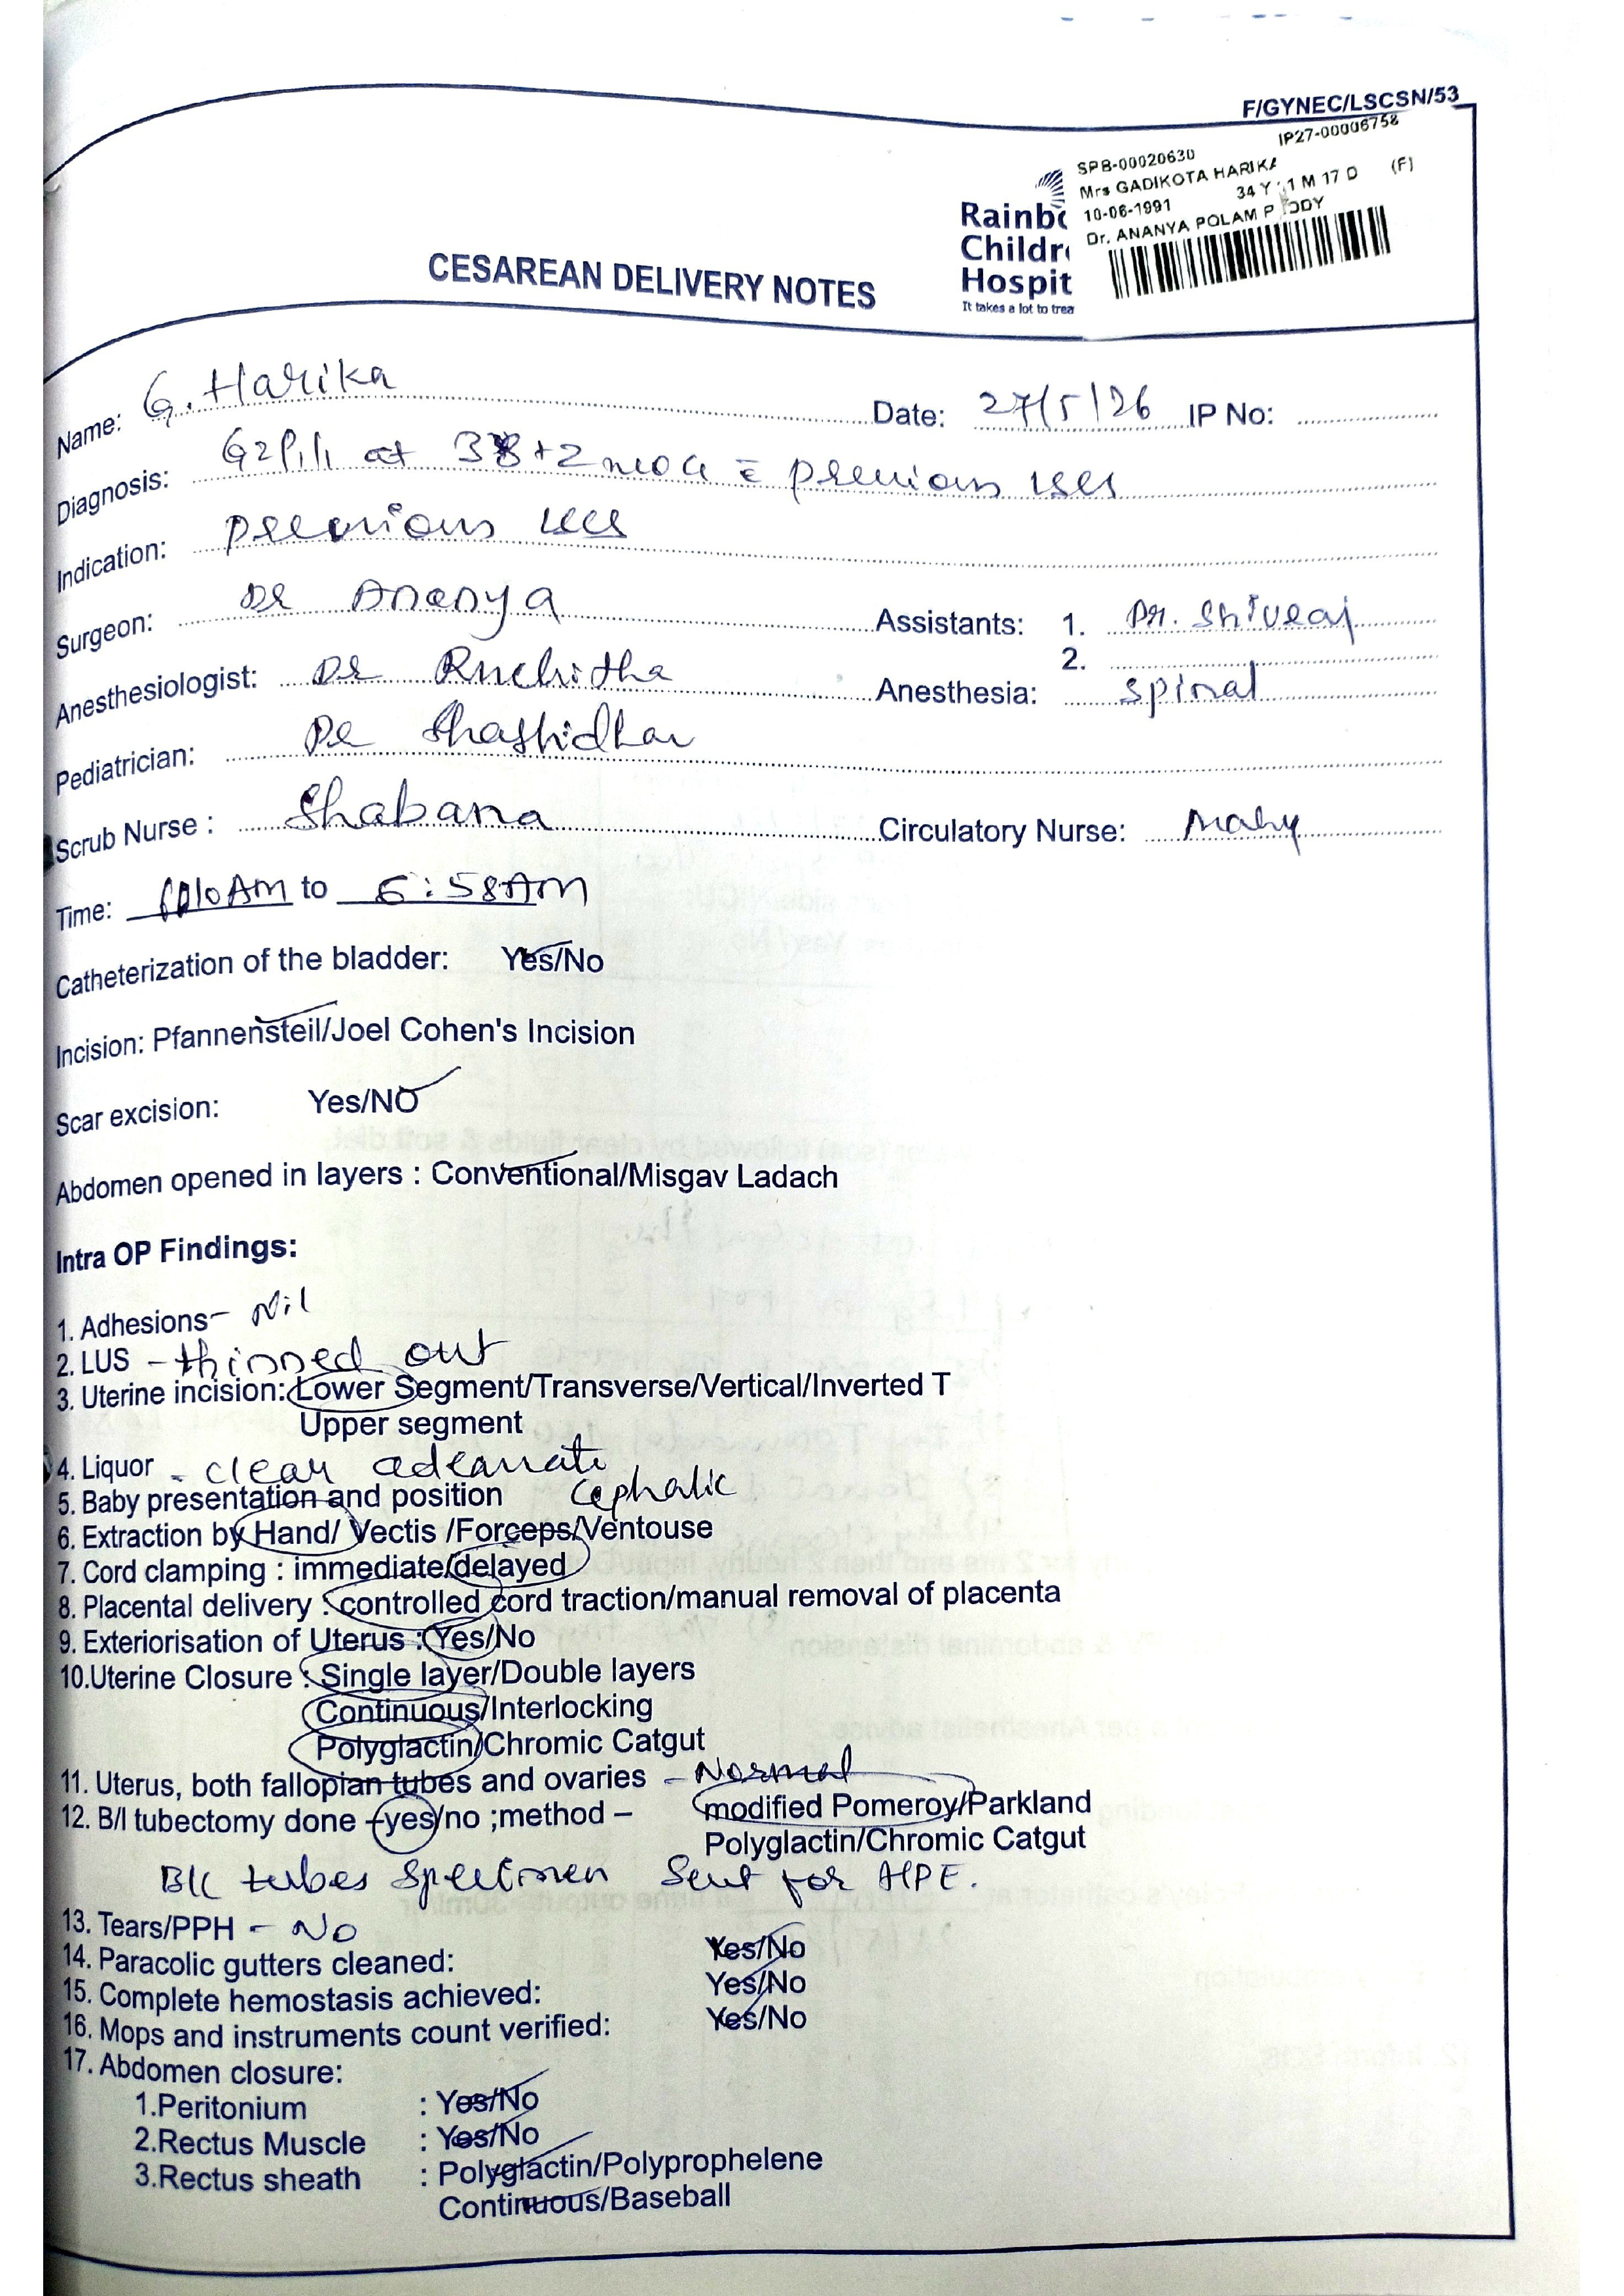 F/GYNEC/LSCSN/53
IP27-00006758
SPB-00020630
Mrs GADIKOTA HARIKA
10-06-1991 34 Y 1 M 17 D (F)
Dr. ANANYA POLAM
Rainbo
Childre
Hospit
It takes a lot to trea
CESAREAN DELIVERY NOTES
Name: G. Harika Date: 27/5/26 IP No:
Diagnosis: G2P1L1 at 38+2 previous LSCS
Indication: previous LSCS
Surgeon: Dr Ananya Assistants: 1. Dr. Shivraj
2.
Anesthesiologist: Dr Ruchitha Anesthesia: spinal
Pediatrician: Dr Shashidhar
Scrub Nurse : Shabana Circulatory Nurse:
Time: AM to 6:58AM
Catheterization of the bladder: Yes/No
Incision: Pfannensteil/Joel Cohen's Incision
Scar excision: Yes/NO
Abdomen opened in layers : Conventional/Misgav Ladach
Intra OP Findings:
1. Adhesions- Nil
2. LUS - thinned out
3. Uterine incision: Lower Segment/Transverse/Vertical/Inverted T
Upper segment
4. Liquor - clear adequate
5. Baby presentation and position cephalic
6. Extraction by Hand/ Vectis /Forceps/Ventouse
7. Cord clamping : immediate/delayed
8. Placental delivery : controlled cord traction/manual removal of placenta
9. Exteriorisation of Uterus : Yes/No
10.Uterine Closure : Single layer/Double layers
Continuous/Interlocking
Polyglactin/Chromic Catgut
11. Uterus, both fallopian tubes and ovaries - Normal
12. B/l tubectomy done -yes/no ;method – modified Pomeroy/Parkland
Polyglactin/Chromic Catgut
B/L tubes specimen sent for HPE.
13. Tears/PPH - No
14. Paracolic gutters cleaned: Yes/No
15. Complete hemostasis achieved: Yes/No
16. Mops and instruments count verified: Yes/No
17. Abdomen closure:
1.Peritonium : Yes/No
2.Rectus Muscle : Yes/No
3.Rectus sheath : Polyglactin/Polyprophelene
Continuous/Baseball